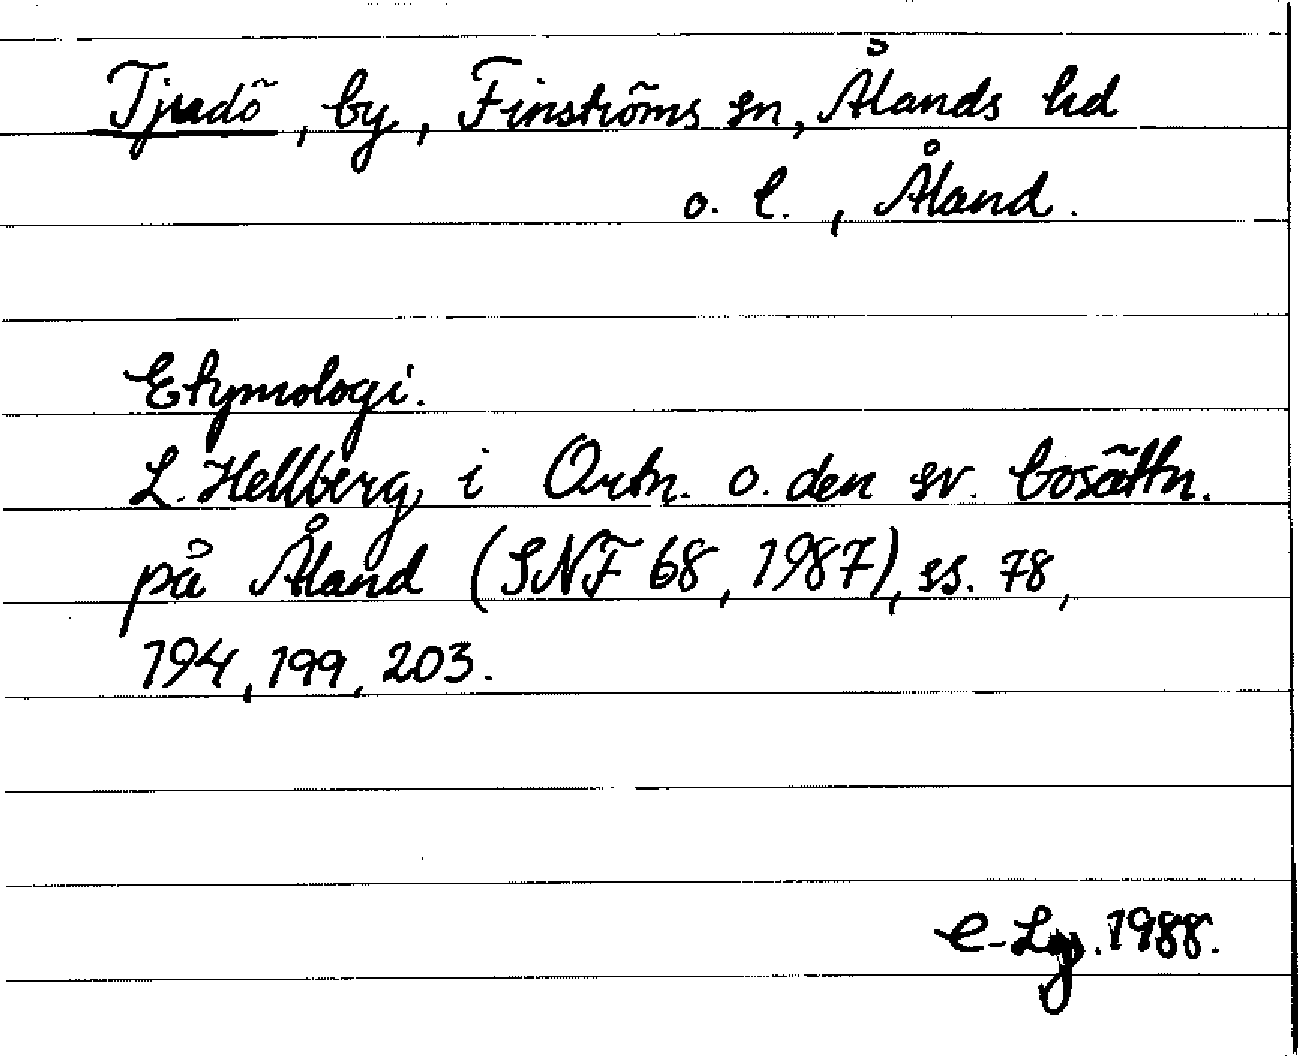 Tjudö, by, Finströms sn, Ålands hd
o. l., Åland.
Etymologi.
L. Hellberg i Ortn. o. den sv. bosättn.
på Åland (SNF 68, 1987), ss. 78,
194, 199, 203.
C-Lg. 1988.